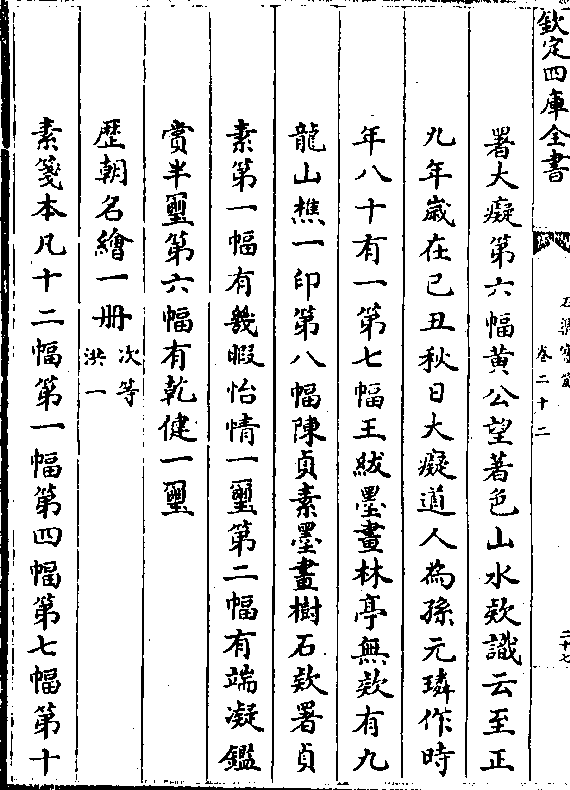 欽定四庫全書
石渠寶笈
卷二十二
二十七
署大癡第六幅黃公望著色山水欵識云至正
九年歲在己丑秋日大癡道人為孫元璘作時
年八十有一第七幅王紱墨畫林亭無欵有九
龍山樵一印第八幅陳貞素墨畫樹石欵署貞
素第一幅有幾暇怡情一璽第二幅有端凝鑑
賞半璽第六幅有乾健一璽
歷朝名繪一冊次等
洪一
素箋本凡十二幅第一幅第四幅第七幅第十